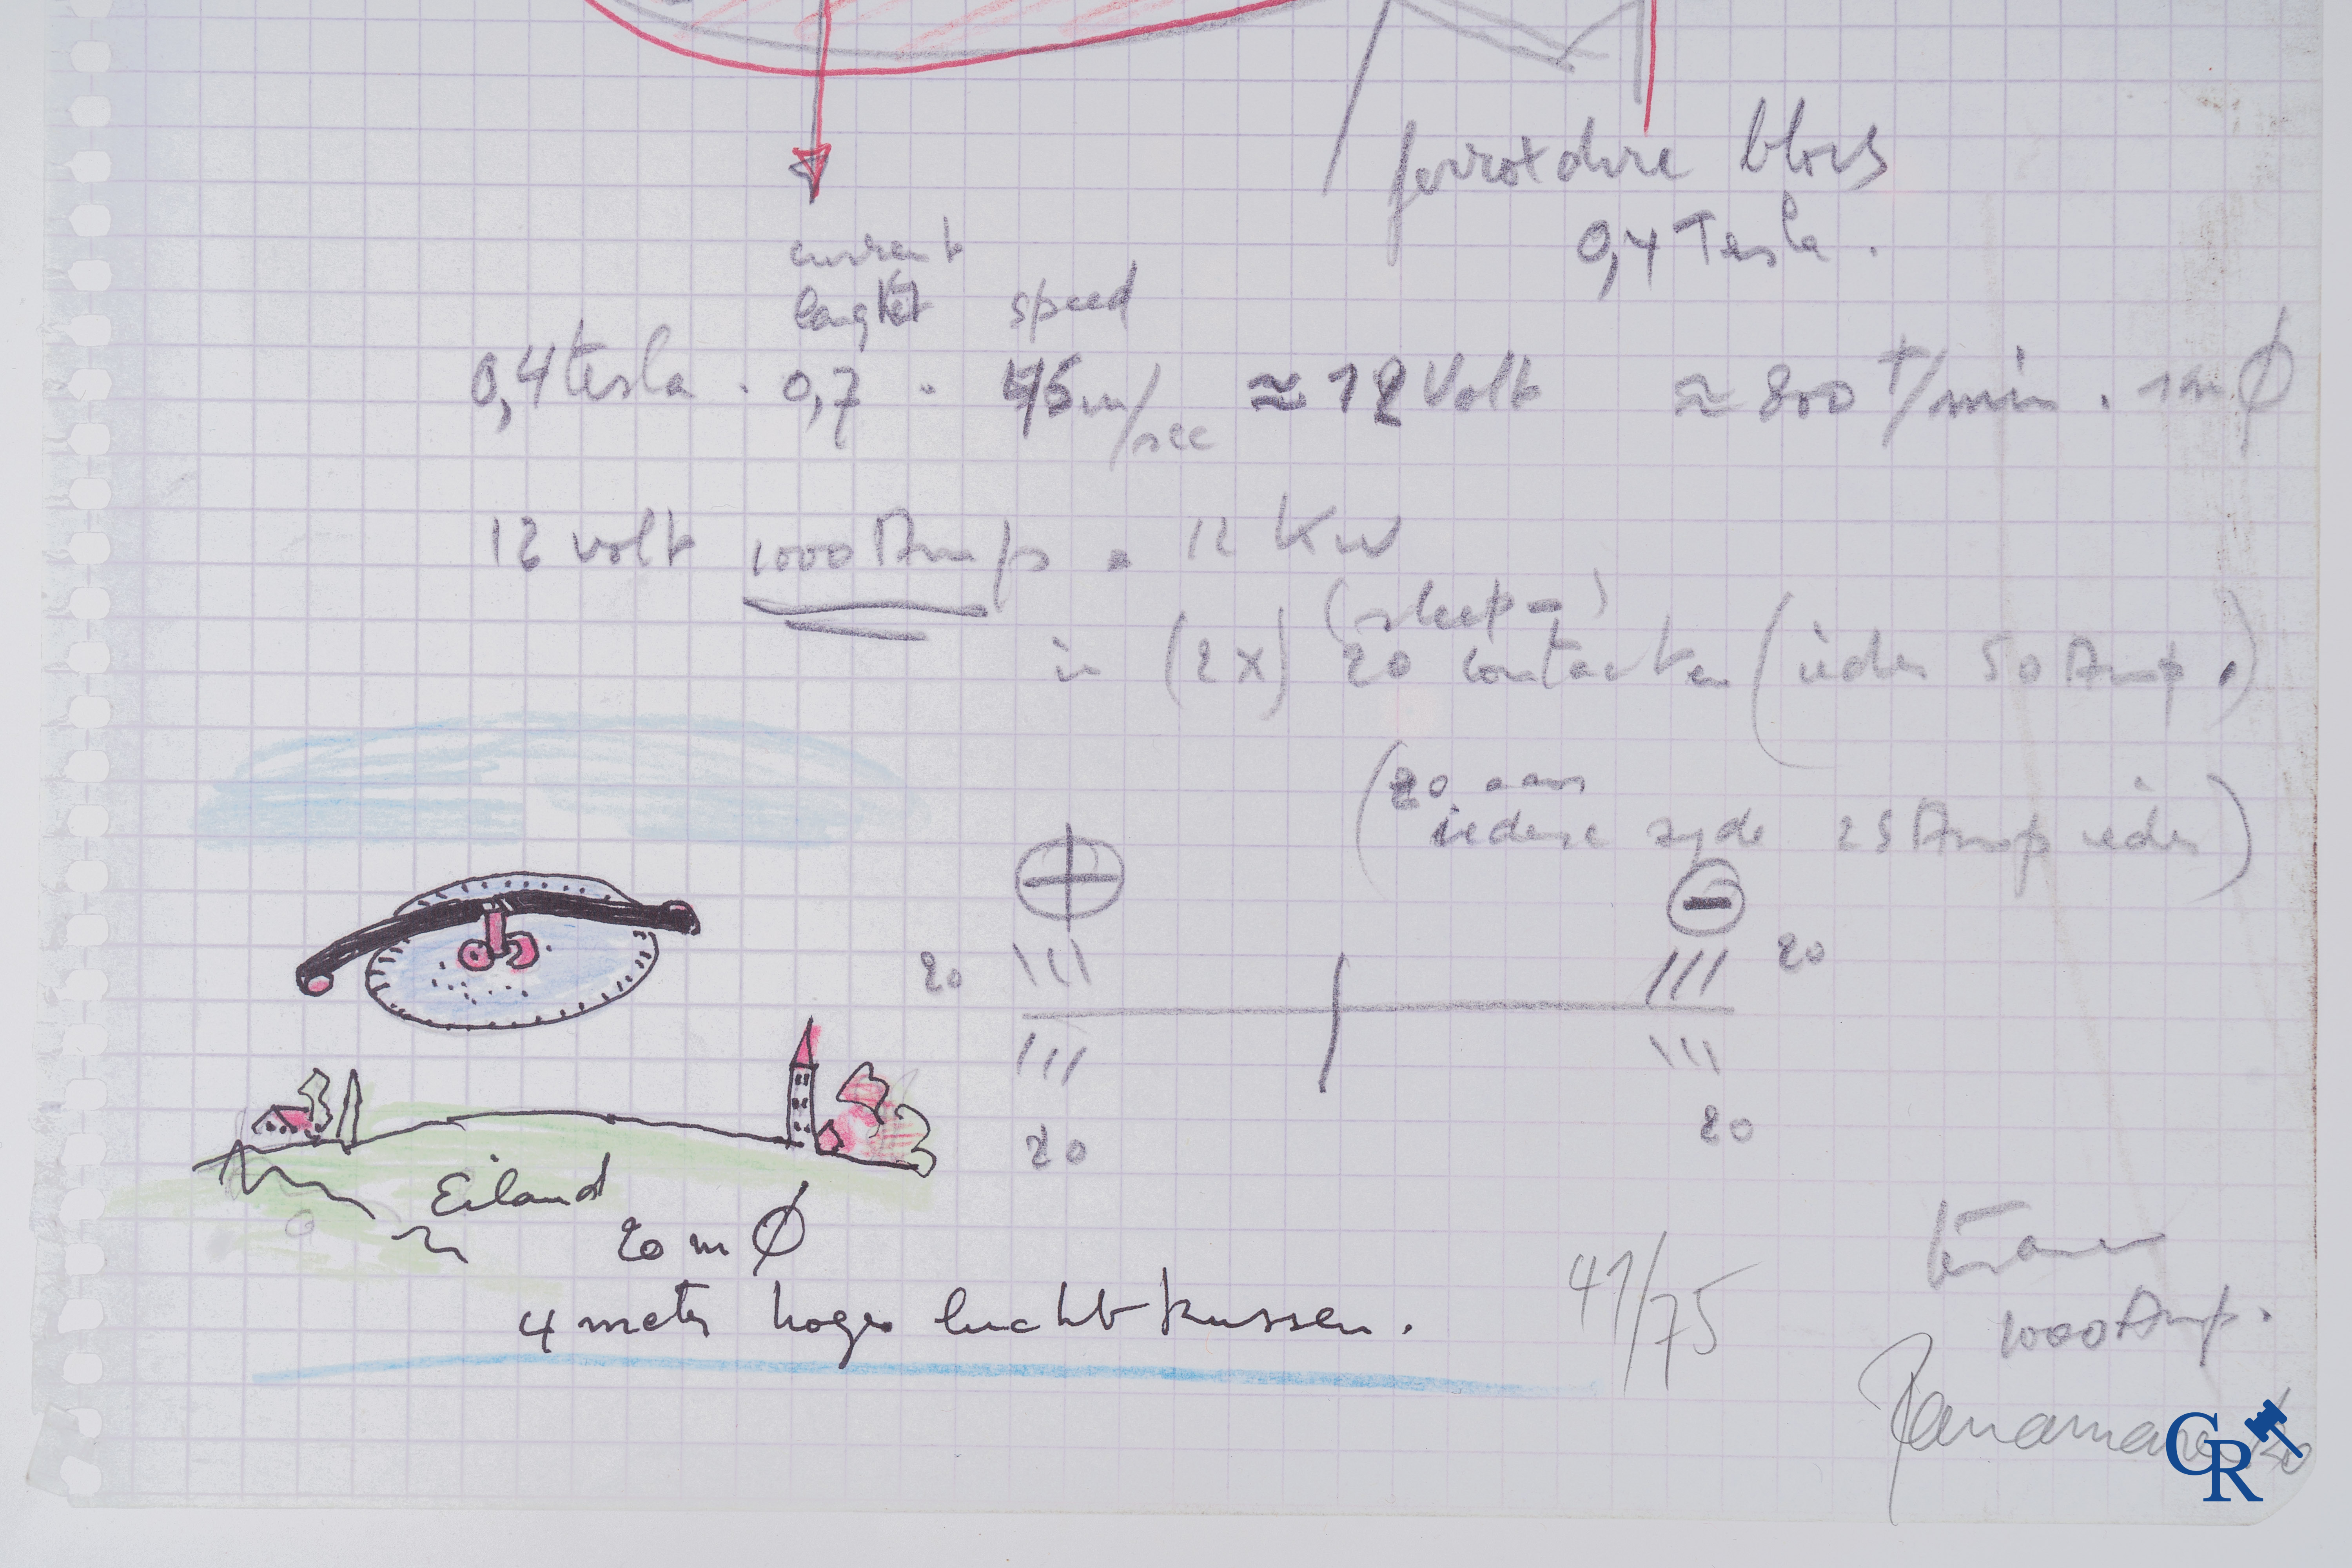 ferroxdure blocs
0,4 Tesla.
current
lengte speed
0,4 tesla . 0,7 . 45 m/sec ≈ 12 Volt ≈ 800 t/min. 1m Ø
12 volt 1000 Amps = 12 Kw
(sleep-)
in (2x) 20 contacten (ieder 50 Amp.)
(20 aan
iedere zyde 25 Amp ieder)
+ −
20 20
20 20
Eiland
20 m Ø
4 meter hoge luchtkussen.
41/75
1000 Amp.
Panamarenko
CR